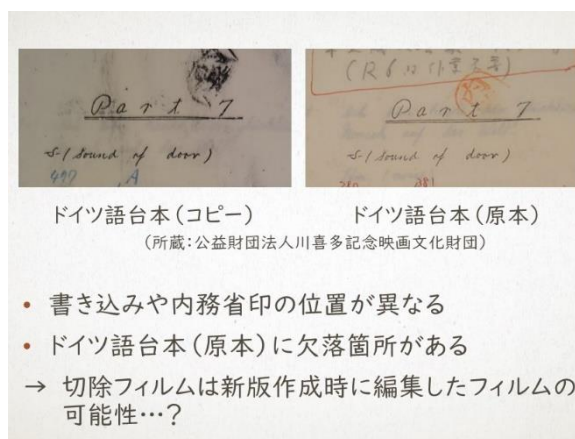 (R6は作業ミス)
Part 7
S-1 (sound of door)
497 A
Part 7
S-1 (sound of door)
ドイツ語台本(コピー)
ドイツ語台本(原本)
(所蔵:公益財団法人川喜多記念映画文化財団)
• 書き込みや内務省印の位置が異なる
• ドイツ語台本(原本)に欠落箇所がある
→ 切除フィルムは新版作成時に編集したフィルムの
可能性…?